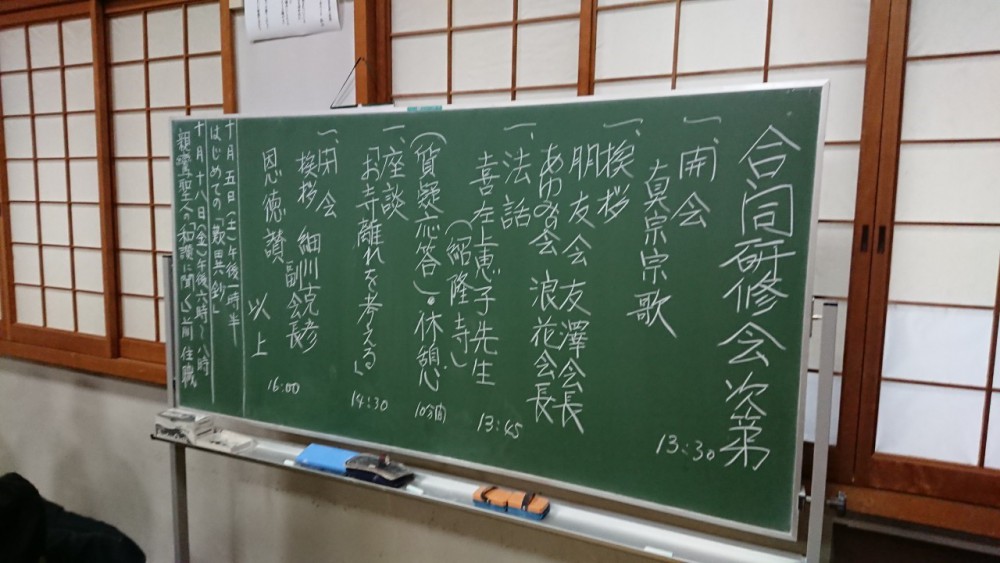 合同研修会次第
13:30
一、開会
真宗宗歌
一、挨拶
朋友会 友澤会長
あゆみの会 浪花会長
一、法話
喜左上恵子先生
13:45
(紹隆寺)
(質疑応答)・休憩
10分間
一、座談
「お寺離れを考える」
14:30
一、閉会
挨拶 細川克彦
副会長
恩徳讃
16:00
以上
十月五日(土)午後一時半
はじめての「歎異抄」
十月十八日(金)午後六時〜八時
親鸞聖人の「和讃に聞く」前住職